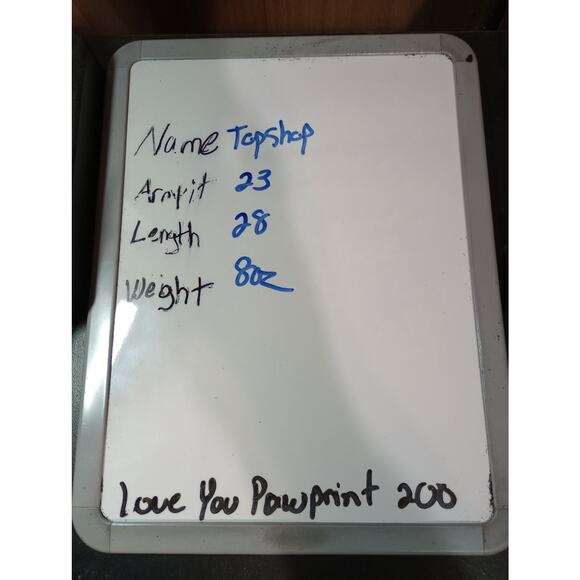 Name Topshop
Armpit 23
Length 28
Weight 8oz
Love You Pawprint 200